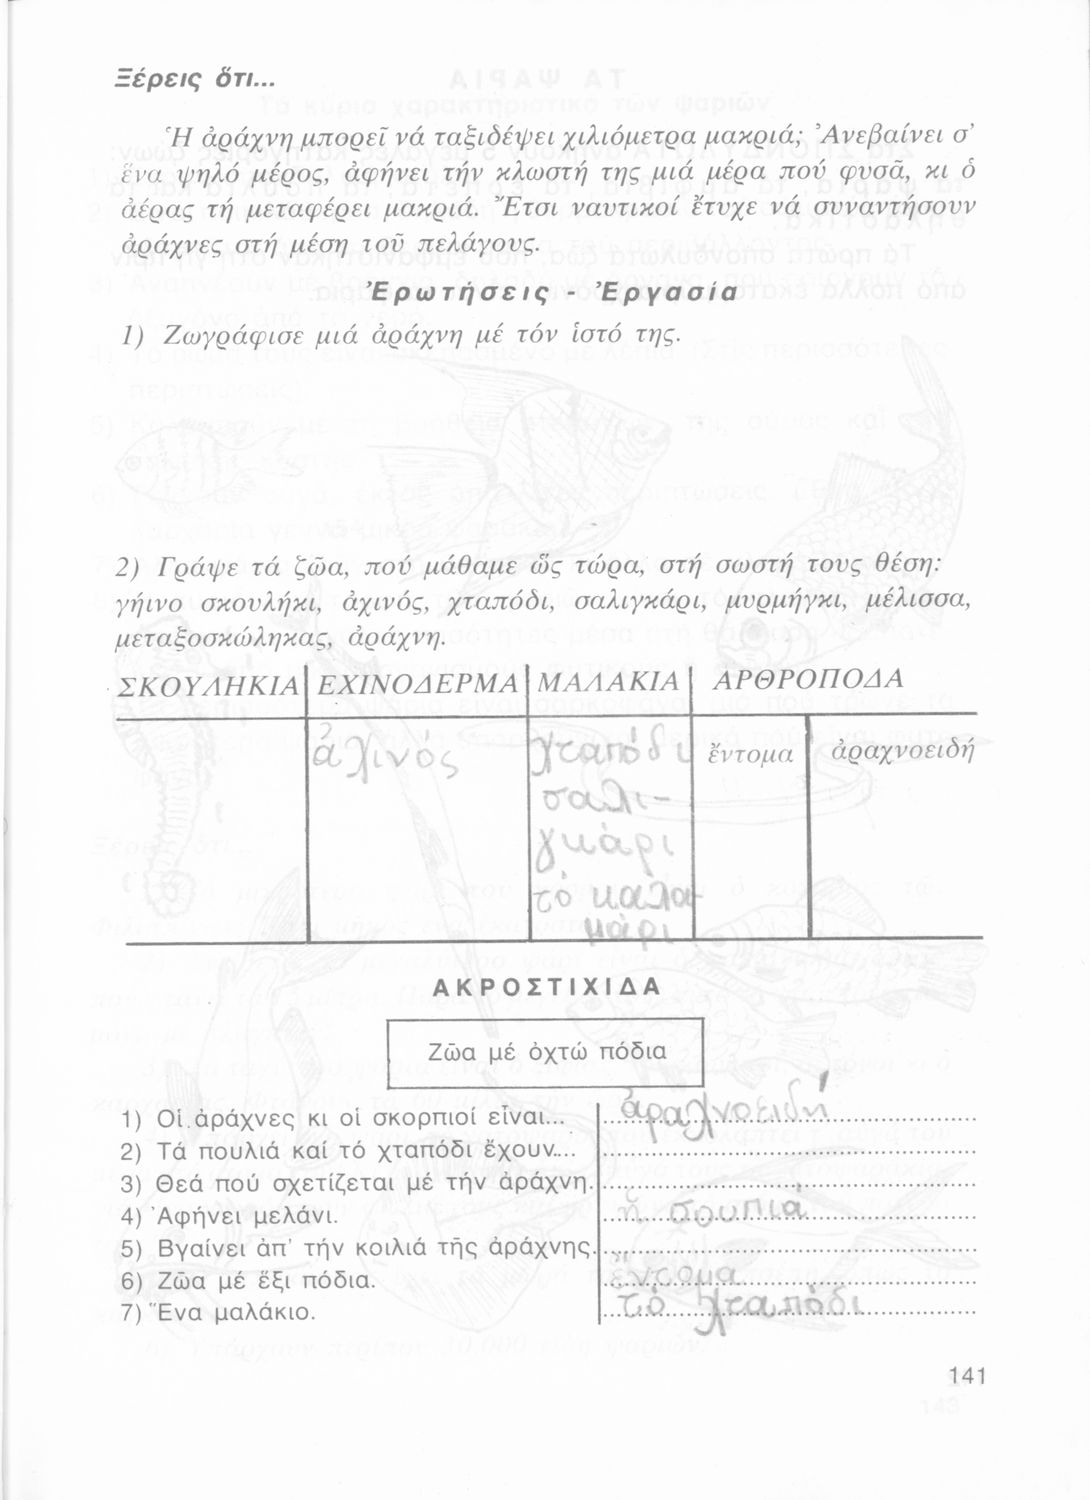 Ξέρεις ὅτι...
Ἡ ἀράχνη μπορεῖ νά ταξιδέψει χιλιόμετρα μακριά; Ἀνεβαίνει σ'
ἕνα ψηλό μέρος, ἀφήνει τήν κλωστή της μιά μέρα πού φυσᾶ, κι ὁ
ἀέρας τή μεταφέρει μακριά. Ἔτσι ναυτικοί ἔτυχε νά συναντήσουν
ἀράχνες στή μέση τοῦ πελάγους.
Ἐρωτήσεις - Ἐργασία
1) Ζωγράφισε μιά ἀράχνη μέ τόν ἱστό της.
2) Γράψε τά ζῶα, πού μάθαμε ὥς τώρα, στή σωστή τους θέση:
γήινο σκουλήκι, ἀχινός, χταπόδι, σαλιγκάρι, μυρμήγκι, μέλισσα,
μεταξοσκώληκας, ἀράχνη.
ΣΚΟΥΛΗΚΙΑ ΕΧΙΝΟΔΕΡΜΑ ΜΑΛΑΚΙΑ ΑΡΘΡΟΠΟΔΑ
ἀχινός χταπόδι ἔντομα ἀραχνοειδή
σαλι-
γκάρι
τό καλα-
μάρι
ΑΚΡΟΣΤΙΧΙΔΑ
Ζῶα μέ ὀχτώ πόδια
1) Οἱ ἀράχνες κι οἱ σκορπιοί εἶναι... ἀραχνοειδή
2) Τά πουλιά καί τό χταπόδι ἔχουν...
3) Θεά πού σχετίζεται μέ τήν ἀράχνη.
4) Ἀφήνει μελάνι. ἡ σουπιά
5) Βγαίνει ἀπ' τήν κοιλιά τῆς ἀράχνης.
6) Ζῶα μέ ἕξι πόδια. ἔντομα
7) Ἕνα μαλάκιο. τό χταπόδι
141